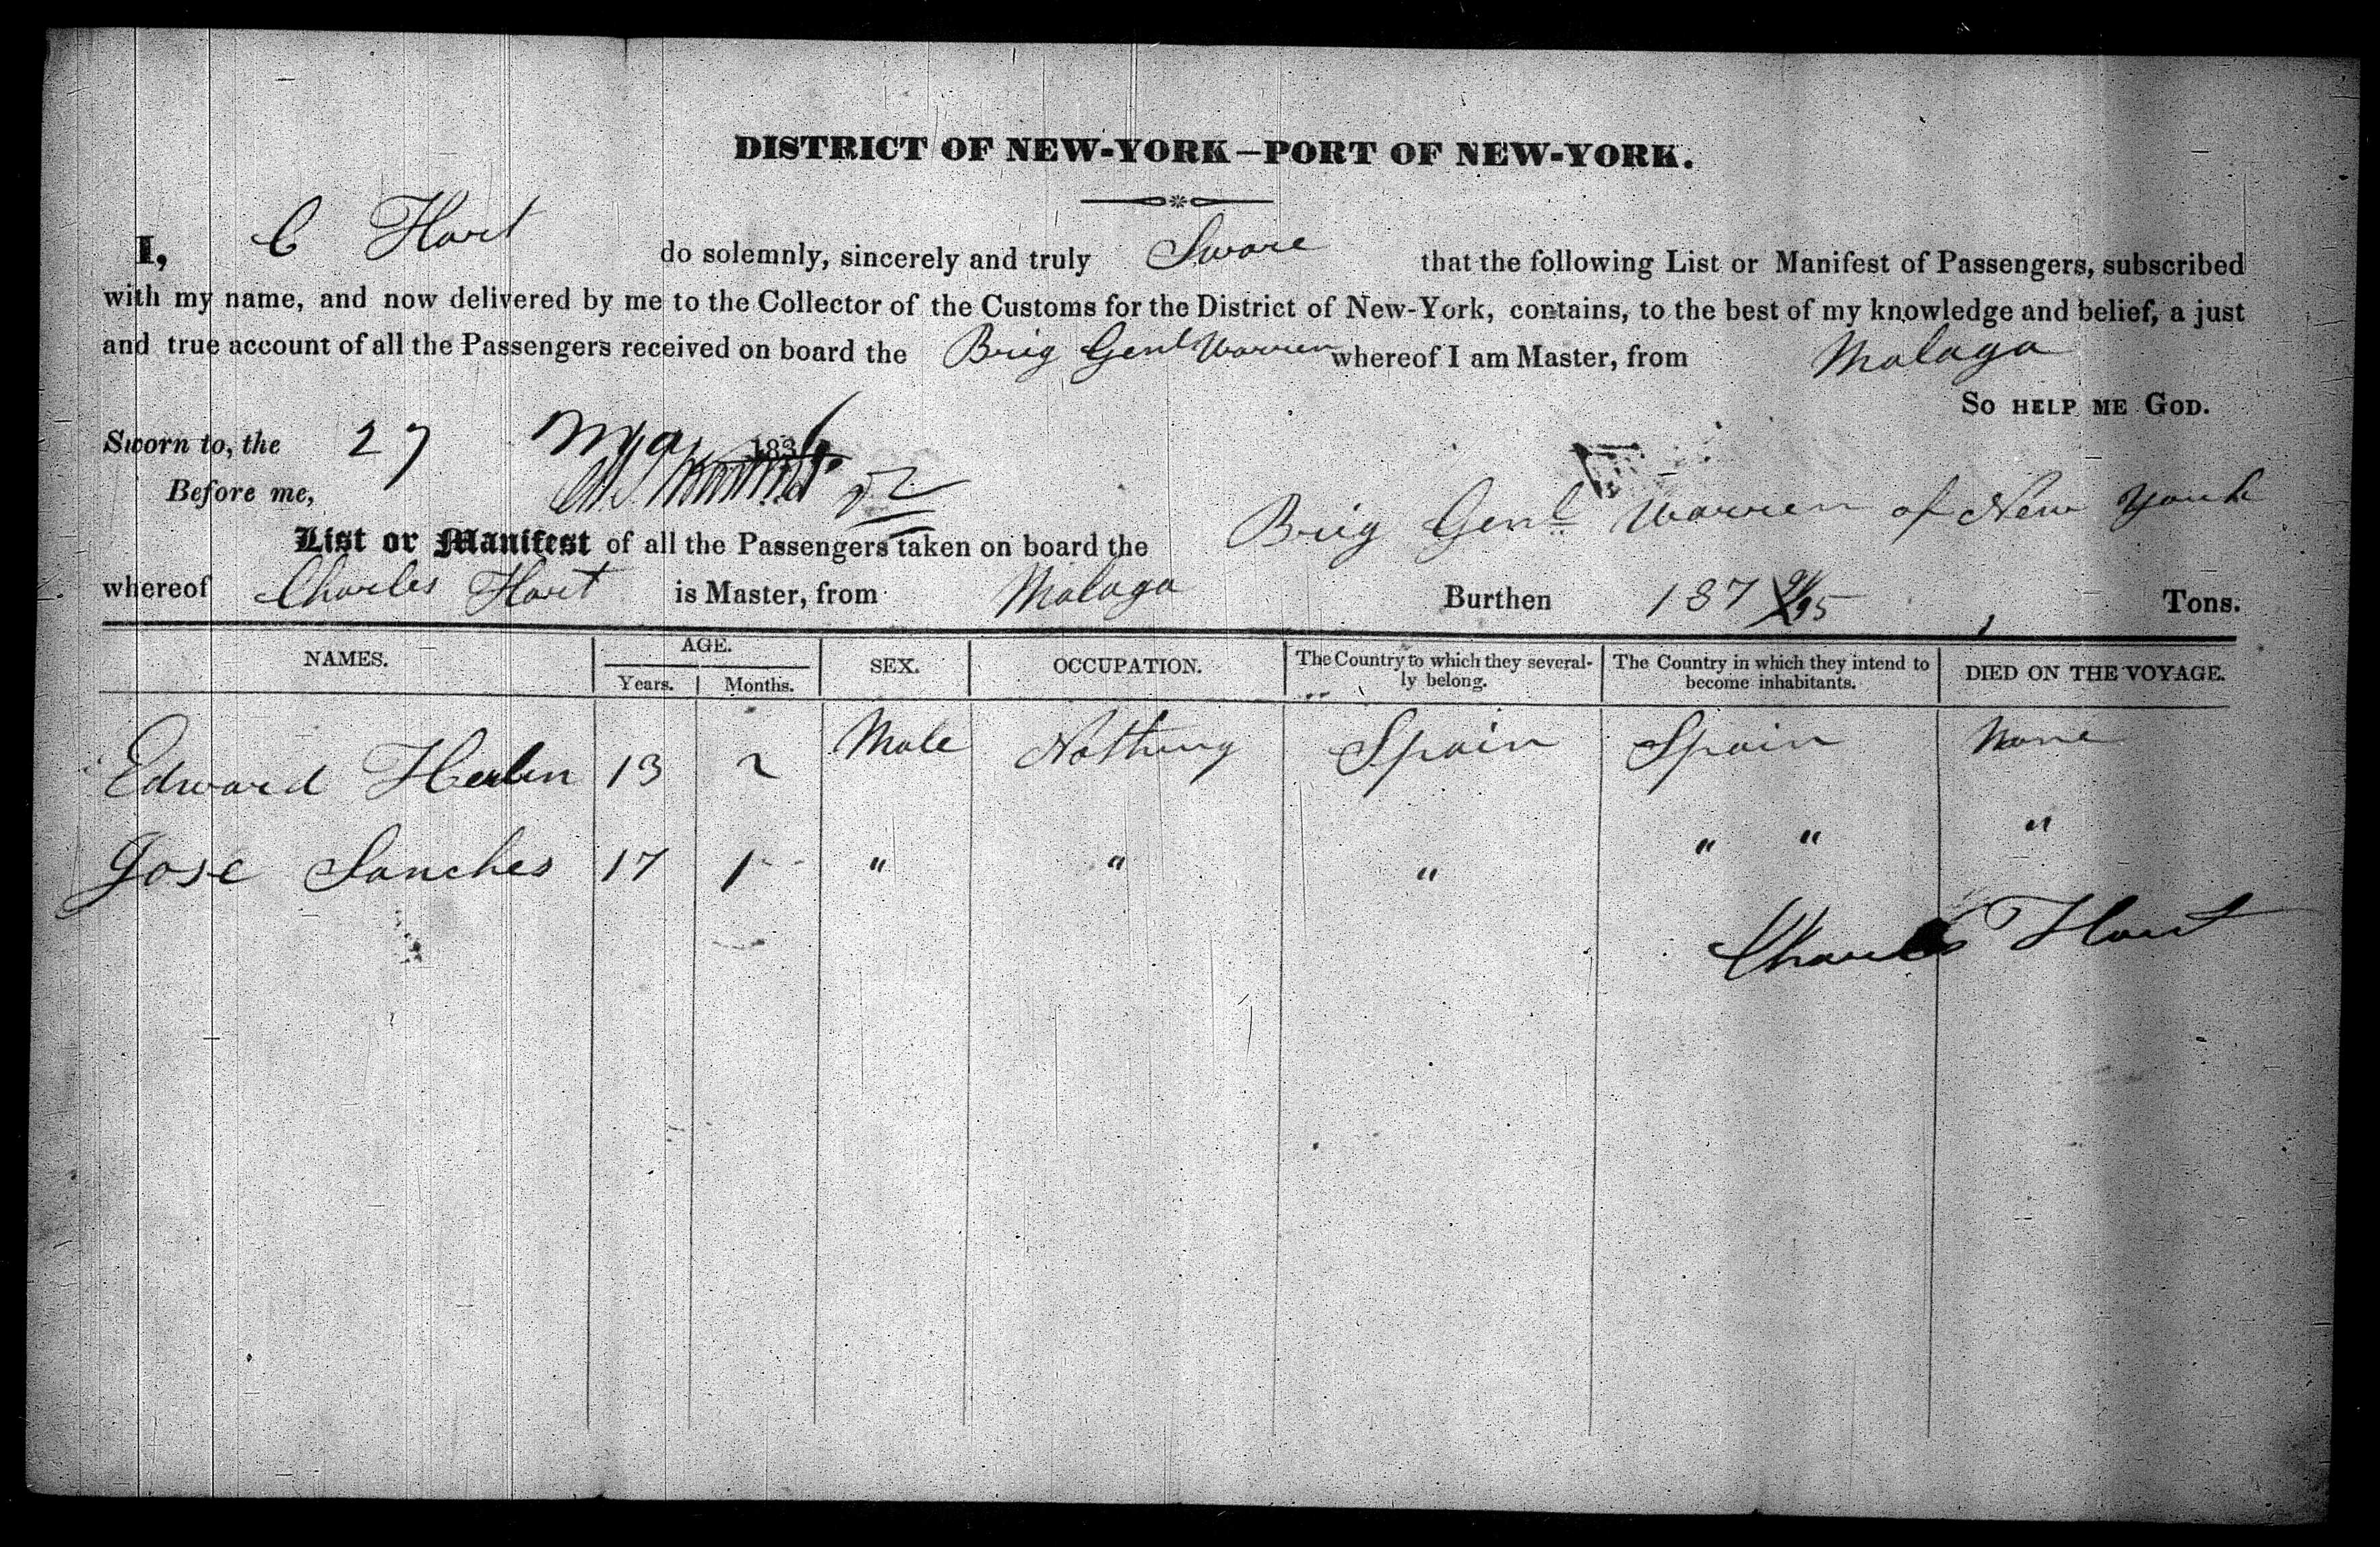 DISTRICT OF NEW-YORK—PORT OF NEW-YORK.
I, C Hart do solemnly, sincerely and truly Sware that the following List or Manifest of Passengers, subscribed
with my name, and now delivered by me to the Collector of the Customs for the District of New-York, contains, to the best of my knowledge and belief, a just
and true account of all the Passengers received on board the Brig Genl Warren whereof I am Master, from Malaga
SO HELP ME GOD.
Sworn to, the 27 1836
Before me,
List or Manifest of all the Passengers taken on board the Brig Genl Warren of New York
whereof Charles Hart is Master, from Malaga Burthen 187 Tons.
NAMES. AGE. Years. Months. SEX. OCCUPATION. The Country to which they severally belong. The Country in which they intend to become inhabitants. DIED ON THE VOYAGE.
Edward 13 2 Male Nothing Spain Spain None
Jose Sanches 17 1 " " " " " "
Charles Hart